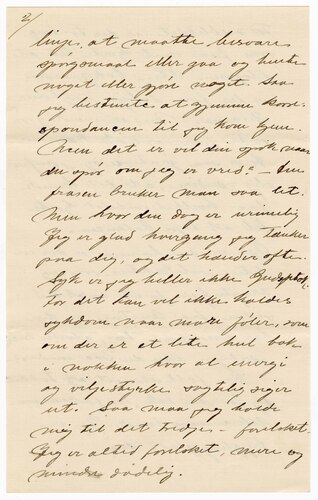 2/
linje, at maatte besvare
spørgsmaal eller gaa og hente
noget eller gjøre noget. Saa
jeg bestemte at gjemme korre-
spondancen til jeg kom hjem.
Men det er vel din spøk naar
du spør om jeg er vred? – Den
frasen bruker man saa let.
Men hvor den dog er urimelig
Jeg er glad hvergang jeg tænker
paa dig, og det hænder ofte.
Syk er jeg heller ikke
for det kan vel ikke kaldes
sykdom naar man føler, som
om der er et lite hul bak
i nakken hvor al energi
og viljestyrke sagtelig siger
ut. Saa maa jeg holde
mig til det tredje – forelsket.
Jeg er altid forelsket, mere og
mindre dødelig.